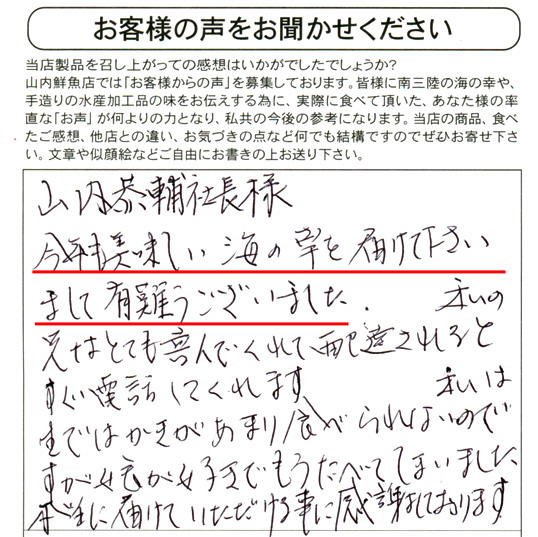 お客様の声をお聞かせください
当店製品を召し上がっての感想はいかがでしたでしょうか?
山内鮮魚店では「お客様からの声」を募集しております。皆様に南三陸の海の幸や、
手造りの水産加工品の味をお伝えする為に、実際に食べて頂いた、あなた様の率
直な「お声」が何よりの力となり、私共の今後の参考になります。当店の商品、食べ
たご感想、他店との違い、お気づきの点など何でも結構ですのでぜひお寄せ下さ
い。文章や似顔絵などご自由にお書きの上お送り下さい。
山内恭輔社長様
今年も美味しい海の幸を届けて下さい
まして有難うございました. 私の
兄はとても喜んでくれて配達されると
すぐい電話してくれます 私は
生ではかきがあまり食べられないので
すが が好きでもうたべてしまいました
に届けていただける事に感謝しております